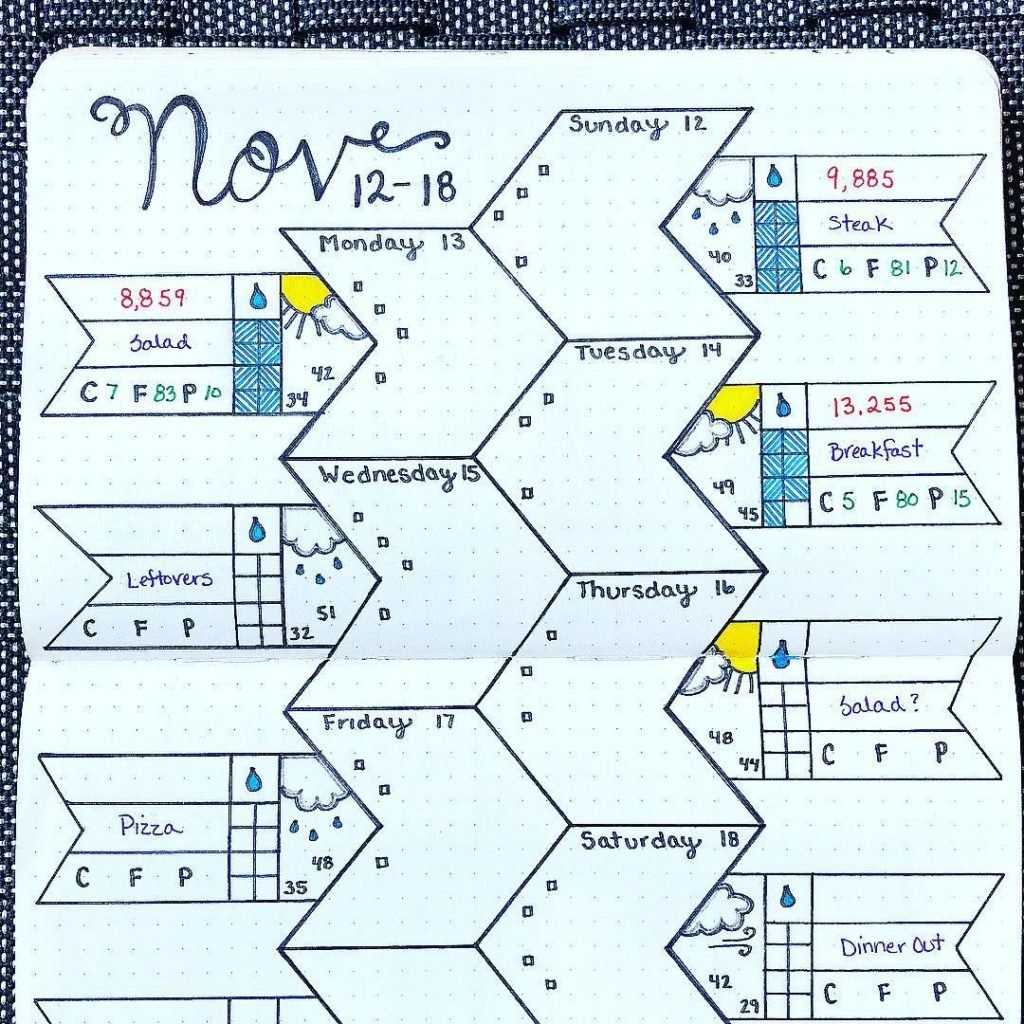 Nov
12-18
Sunday 12
9,885
Steak
40
33
C 6 F 81 P 12
Monday 13
8,859
Salad
42
34
C 7 F 83 P 10
Tuesday 14
13.255
Breakfast
49
45
C 5 F 80 P 15
Wednesday 15
Leftovers
51
32
C F P
Thursday 16
Salad?
48
44
C F P
Friday 17
Pizza
48
35
C F P
Saturday 18
Dinner Out
42
29
C F P